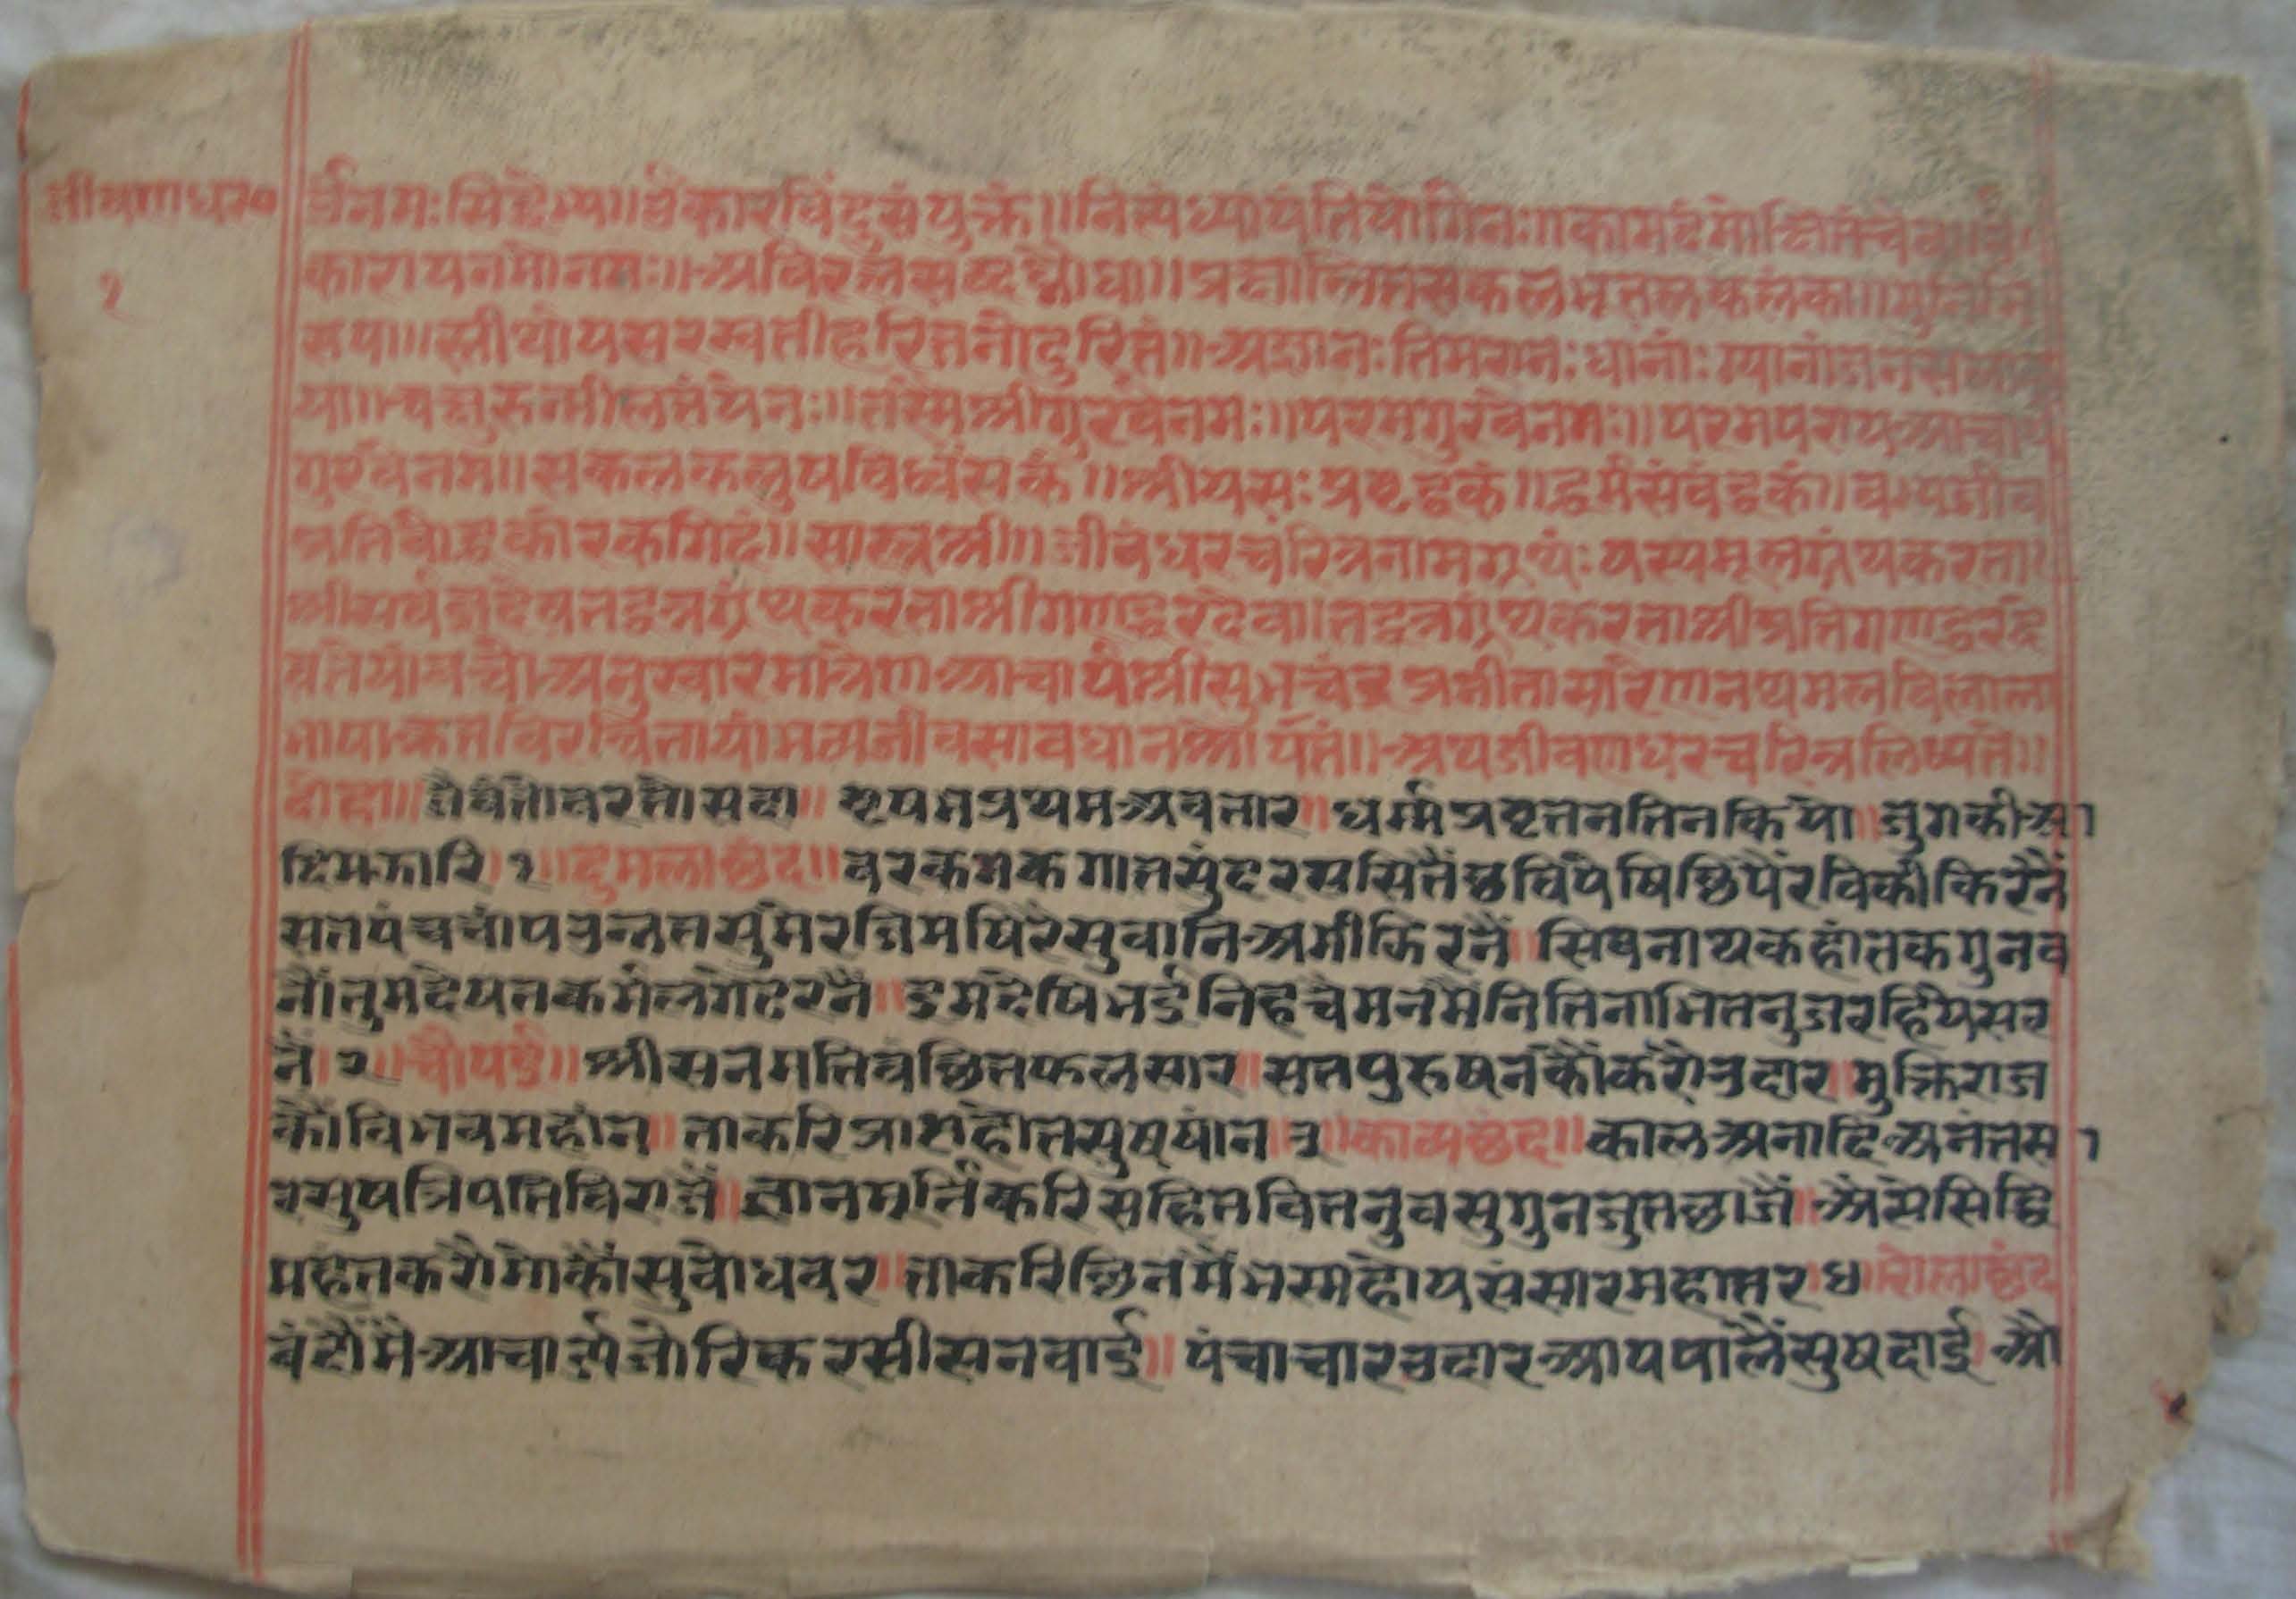 जीवणधर०
१
ॐनमःसिद्धेभ्य॥ॐकारविंदुसंयुक्तं॥नित्यंध्यायंतियोगिनः॥कामदंमोक्षिदंचेव॥ॐ
कारायनमोनमः॥अविरलसब्दघ्नौघा॥प्रक्षालितसकलभूतलकलंका॥मुनिभि
रुपा॥स्तीर्थायसरस्वतीहरितनोदुरितं॥अज्ञानःतिमरानःधानांःग्यानांजनसलाक
या॥चक्षुरुन्मीलतंयेनः॥तस्मेश्रीगुरंवेनमः॥परमगुरंवेनमः॥परमपरायआचार्य
गुरंवेनम॥सकलकलुषविध्वंसकं॥श्रीयसःप्रष्टद्धकं॥द्धर्मसंवंद्धकं॥वभ्यजीव
प्रतिवोद्धकोरकमिदं॥सास्त्रश्री॥जीवंधरचरित्रनामग्रथंःयस्यमूलग्रंथकरता।
श्रीसर्वज्ञदेवतद्वत्रग्रंथकरताश्रीगणद्धरंदेवा।तद्वत्रग्रंथकरताश्रीप्रतिगणद्धरंदे
वतेयांवचोअनुस्वारमात्रेणआचार्यश्रीसुभचंद्रप्रनीतासारेणनथमलविलाला
भाषाक्रतविरचितायांमव्यजीवसावधानश्रीर्यतं॥अथजीवणधरचरित्रलिष्यते॥
दोहा॥जैवंतोवरतोसदा॥ऋषभप्रथमअवतार॥धर्म्मप्रष्टतनतिनकियो॥जुगकीआ
दिमझारि।१॥दुमलाछंद॥वरकनकगातसुंदरससितैंछविपेषिछिपैंरविकीकिरनैं
सतपंचचांपउन्नतसुंमेरजिमषिरेसुवानिअमीकिरनैं॥सिवनाथकहांतकगुनव
नौंतुमदेषतकर्मलगेटरनैं॥इमदेषिभईनिहचैमनमैंनितिनाभितनुजरहियेसर
नैं।२॥चौपई॥श्रीसनमतिवंछितफलसार॥सतपुरुषनकौंकरोउदार॥मुक्तिराज
कौविभवमहांन॥ताकरिप्राप्तहोतसुषषांन॥३॥काव्यछंद॥कालअनादिअनंतसा
रसुषत्रिपतिविराजैं॥ज्ञानमूर्तिकरिसहितवितनुवसुगुनजुतछाजैं॥अैसेसिद्धि
महंतकरोमोकौंसुवोधवर॥ताकरिछिनमैंभस्महोयसंसारमहातर॥४॥रोलाछंद
वंदौंमैआचार्जजोरिकरसीसनवाई॥पंचाचारउदारआपपालैंसुषदाई।औ